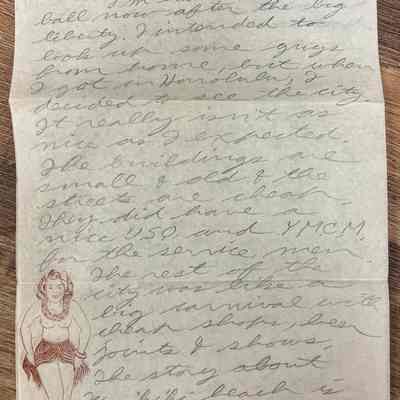 I'm
ball now after the big
liberty. I intended to
look up some guys
from home, but when
I got in Honolulu, I
decided to see the city.
It really isn't as
nice as I expected.
The buildings are
small & old & the
streets are cheap.
They did have a
nice USO and YMCM
for the service men.
The rest of the
city was like a
big carnival with
cheap shops, beer
joints & shows.
The story about
beach is